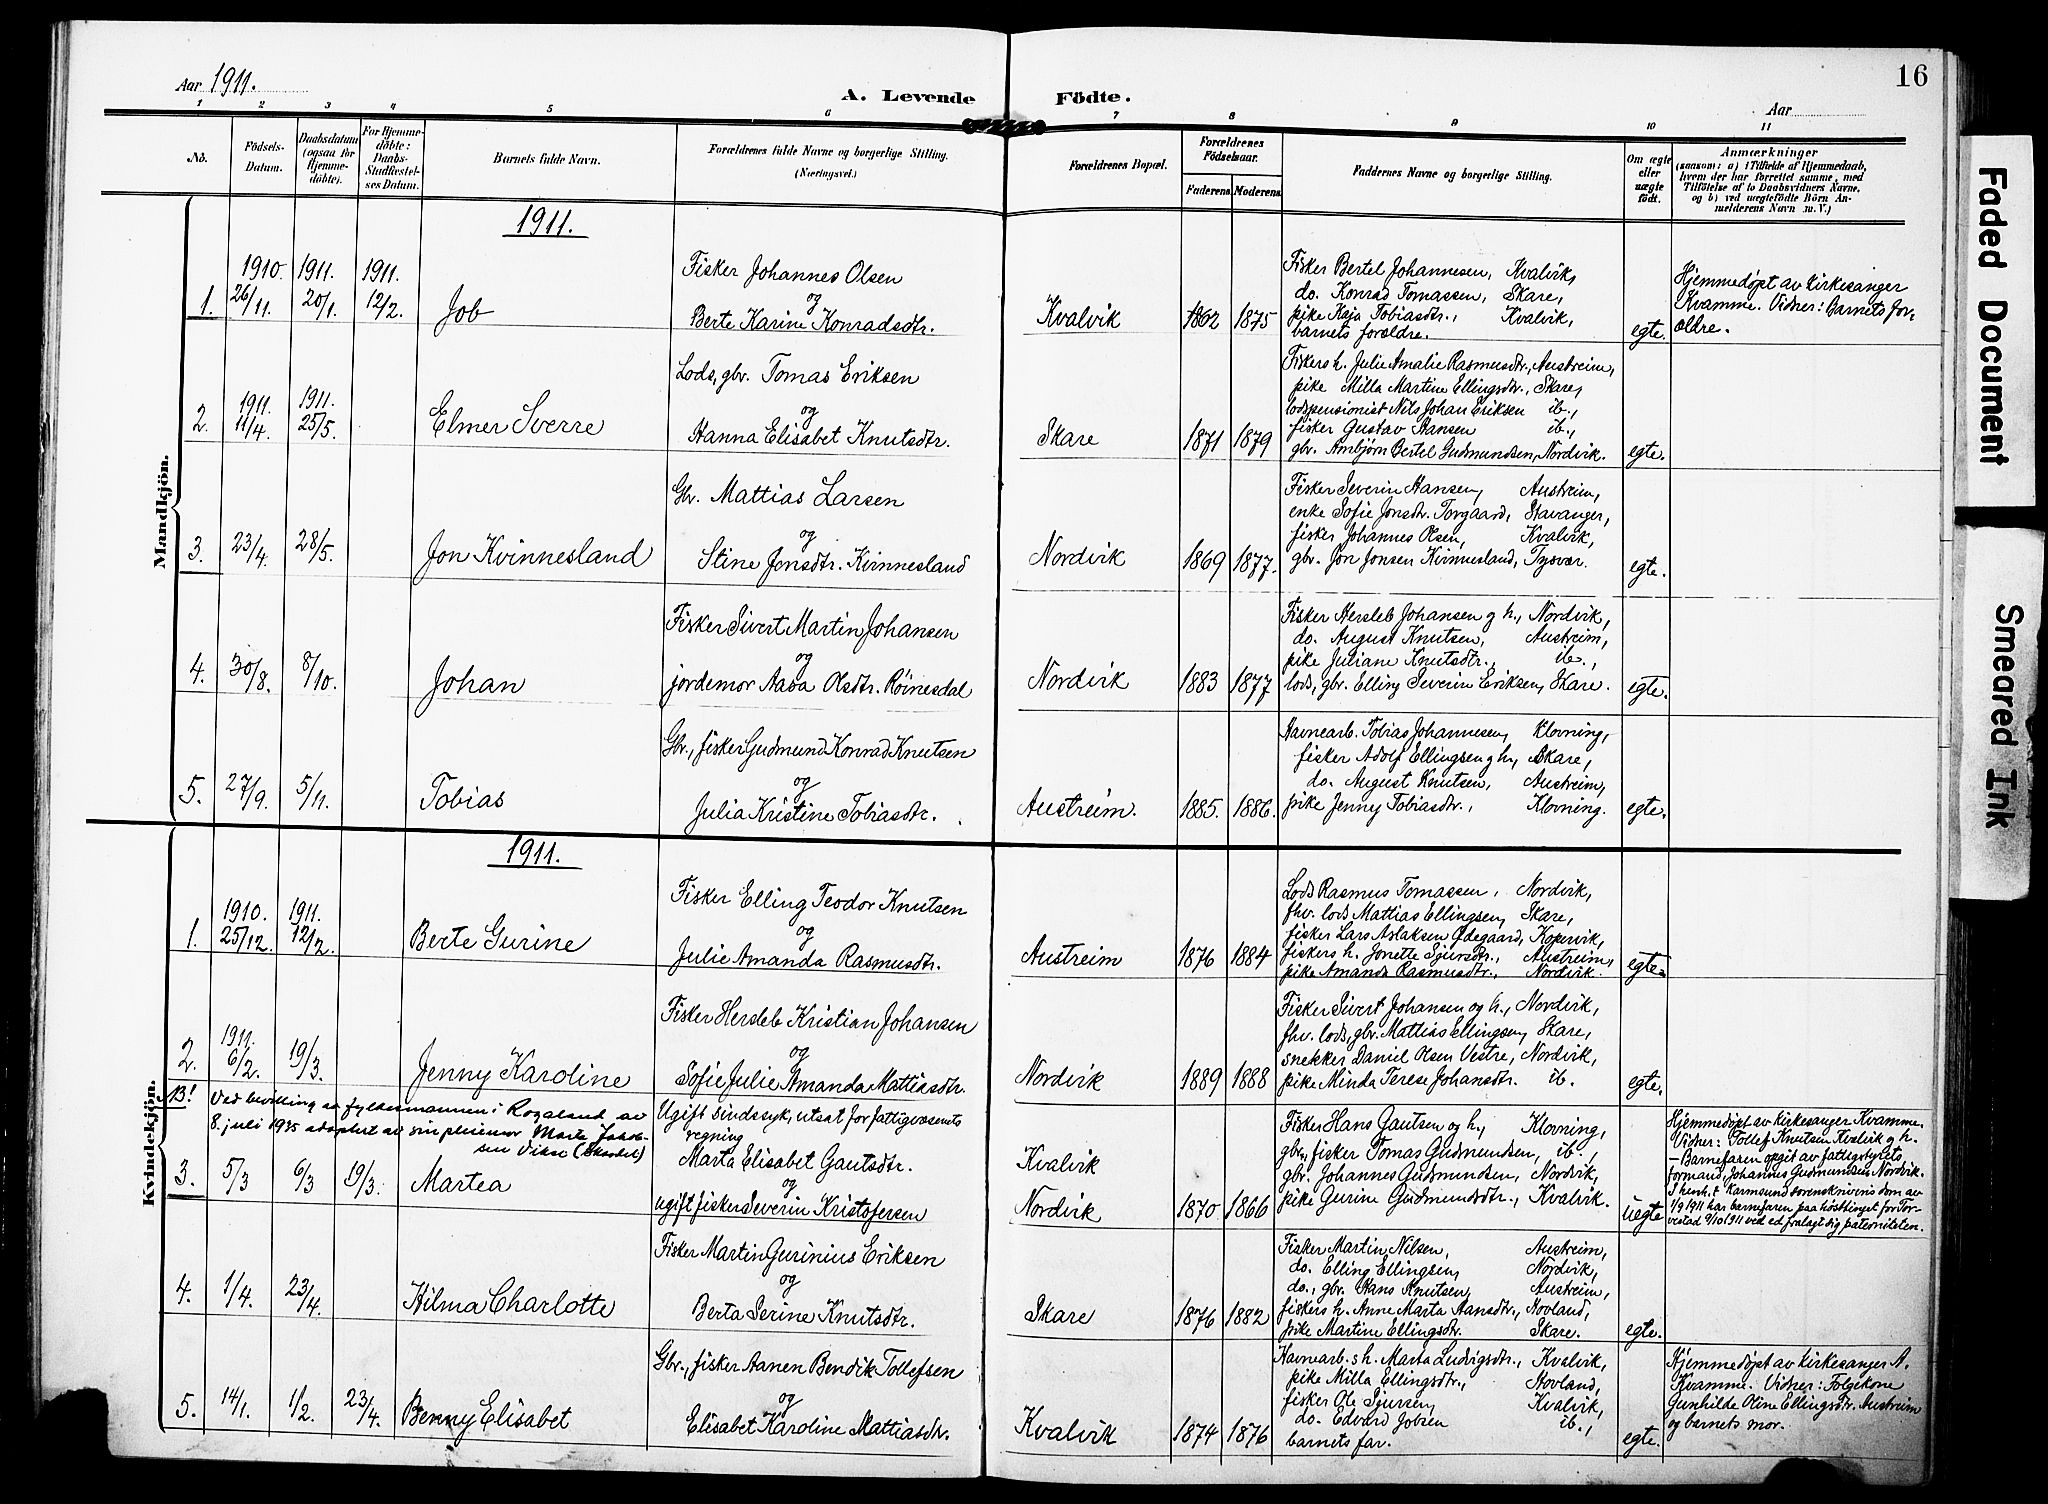 16
Aar 1911.
A. Levende Födte.
Aar
1 2 3 4 5 6 7 8 9 10 11
No.
Födsels-
Datum.
Daabsdatum
(ogsaa for
Hjemme-
döbte).
For Hjemme-
döbte:
Daabs-
Stadfæstel-
ses Datum.
Barnets fulde Navn.
Forældrenes fulde Navne og borgerlige Stilling.
(Næringsvei.)
Forældrenes Bopæl.
Forældrenes
Födselsaar.
Faderens Moderens
Faddernes Navne og borgerlige Stilling.
Om ægte
eller
uægte
födt.
Anmærkninger
(saasom: a) i Tilfælde af Hjemmedaab,
hvem der har forrettet samme, med
Tilföielse af to Daabsvidners Navne,
og b) ved uægtefödte Börn An-
melderens Navn m. V.)
Mandkjön.
1911.
1.
1910.
26/11.
1911.
20/1.
1911.
12/2.
Job
Fisker Johannes Olsen
og
Berte Karine Konradsdtr.
Kvalvik
1862
1875
Fisker Bertel Johannesen, Kvalvik,
do. Konrad Tomassen, Skare,
pike Kaja Tobiasdtr., Kvalvik,
barnets forældre.
egte.
Hjemmedøpt av kirkesanger
Kvamme. Vidner: Barnets for-
ældre.
2.
1911.
11/4.
1911.
25/5.
Elmer Sverre
Lods, gbr. Tomas Eriksen
og
Hanna Elisabet Knutsdtr.
Skare
1871
1879
Fiskers h. Julie Amalie Rasmusdtr., Austreim,
pike Milla Martine Ellingsdtr., Skare,
lodspensionist Nils Johan Eriksen ib.,
fisker Gustav Hansen ib.,
gbr. Arnbjørn Bertel Gudmundsen, Nordvik.
egte.
3.
23/4.
28/5.
Jon Kvinnesland
Gbr. Mattias Larsen
og
Stine Jonsdtr. Kvinnesland
Nordvik
1869
1877.
Fisker Severin Hansen, Austreim,
enke Sofie Jonsdtr. Torgaard, Stavanger,
fisker Johannes Olsen, Kvalvik,
gbr. Jon Jonsen Kvinnesland, Tysvær.
egte.
4.
30/8.
8/10.
Johan
Fisker Sivert Martin Johansen
og
jordemor Aasa Olsdtr. Røinesdal
Nordvik
1883
1877
Fisker Hersleb Johansen og h., Nordvik,
do. August Knutsen, Austreim,
pike Juliane Knutsdtr., ib.,
lods, gbr. Elling Severin Eriksen, Skare.
egte.
5.
27/9.
5/11.
Tobias
Gbr., fisker Gudmund Konrad Knutsen
og
Julia Kristine Tobiasdtr.
Austreim.
1885.
1886.
Havnearb. Tobias Johannesen, Klovning,
fisker Adolf Ellingsen og h., Skare,
do. August Knutsen, Austreim,
pike Jenny Tobiasdtr., Klovning.
egte.
Kvindekjön.
1911.
1.
1910.
25/12.
1911.
12/2.
Berte Gurine
Fisker Elling Teodor Knutsen
og
Julie Amanda Rasmusdtr.
Austreim
1876
1884
Lods Rasmus Tomassen, Nordvik,
fhv. lods Mattias Ellingsen, Skare,
fisker Lars Aslaksen Ødegaard, Kopervik,
fiskers h. Jonette Sjursdtr., Austreim,
pike Amanda Rasmusdtr., Nordvik
egte.
2.
1911.
6/2.
19/3.
Jenny Karoline
Fisker Hersleb Kristian Johansen
og
Sofie Julie Amanda Mattiasdtr.
Nordvik
1889
1888
Fisker Sivert Johansen og h., Nordvik,
fhv. lods, gbr. Mattias Ellingsen, Skare,
snekker Daniel Olsen Vestre, Nordvik,
pike Minda Terese Johansdtr. ib.
egte.
B!
Ved bevilling av fylkesmannen i Rogaland av
8. juli 1935 adoptert av sin pleiemor Marta Jakob-
sen Vikse (Skaadel)
3.
5/3
6/3
19/3.
Martea
Ugift sindssyk, utsat for fattigvæsenets
regning
Marta Elisabet Gautsdtr.
og
ugift fisker Severin Kristofersen
Kvalvik
Nordvik
1870
1866
Fisker Hans Gautsen og h., Klovning,
gbr., fisker Tomas Gudmundsen, ib.,
gbr. Johannes Gudmundsen, Nordvik,
pike Gurine Gudmundsdtr., Kvalvik.
uegte
Hjemmedøpt av kirkesanger Kvamme.
Vidner: Tollef Knutsen Kvalvik og h.
– Barnefaren opgit av fattigstyrets
formand, Johannes Gudmundsen Nordvik.
I henh. t Karmsund sorenskriveris dom av
1/9 1911 har barnefaren paa høsttinget for Tor-
vestad 9/10 1911 ved ed fralagt sig paterniteten.
4.
1/4.
23/4.
Hilma Charlotte
Fisker Martin Gurinius Eriksen
og
Berta Serine Knutsdtr.
Skare
1876
1882
Fisker Martin Nilsen, Austreim,
do. Elling Ellingsen, Nordvik,
do., gbr. Hans Knutsen, Austreim,
fiskers h. Anne Marta Hansdtr., Hovland,
pike Martine Ellingsdtr. Skare.
egte.
5.
14/1.
1/2.
23/4.
Benny Elisabet
Gbr., fisker Aanen Bendik Tollefsen
og
Elisabet Karoline Mattiasdtr.
Kvalvik
1874
1876
Havnearb.s h. Marta Ludvigsdtr., Kvalvik,
pike Milla Ellingsdtr., Hovland,
fisker Ole Sjursen, Kvalvik,
do. Edvard Jobsen ib.,
barnets far.
egte.
Hjemmedøpt av kirkesanger A.
Kvamme. Vidner: Følgekone
Gunhilde Oline Ellingsdtr. Austreim
og barnets mor.
Faded Document
Smeared Ink